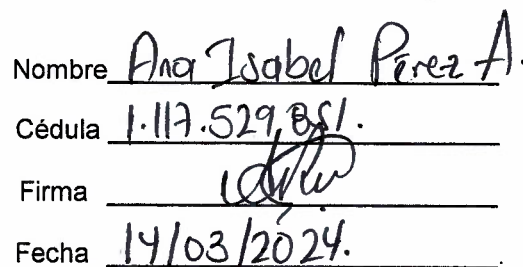 Nombre Ana Isabel Pérez A.
Cédula 1.117.529,851.
Firma
Fecha 14/03/2024.